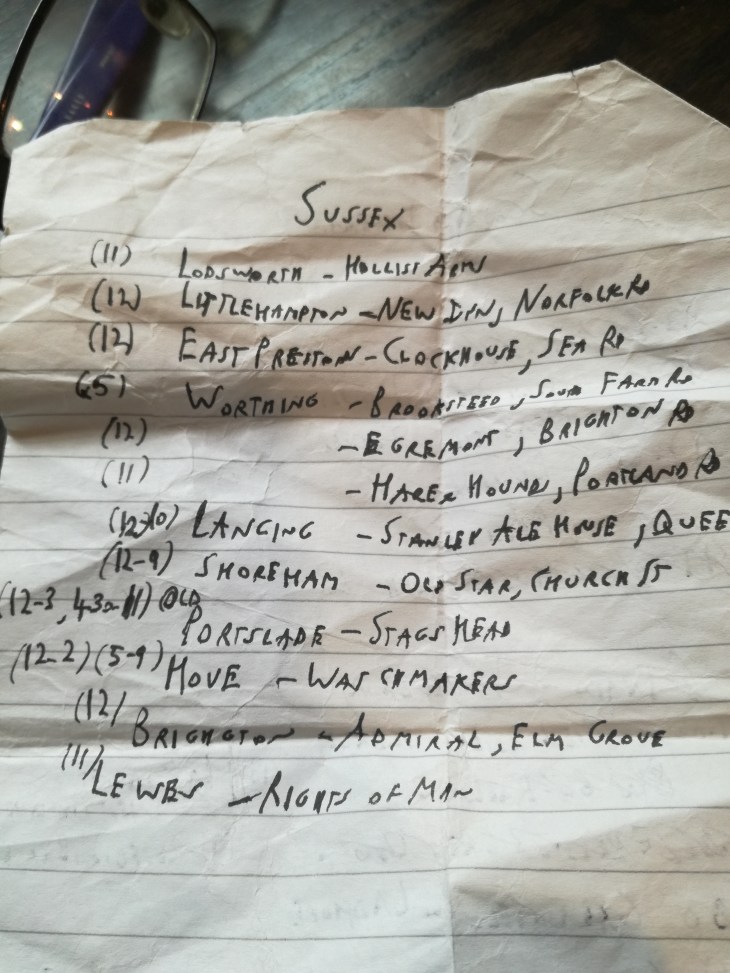 SUSSEX
(11) LODSWORTH - HOLLIST ARMS
(12) LITTLEHAMPTON - NEW INN, NORFOLK RD
(12) EAST PRESTON - CLOCKHOUSE, SEA RD
(5) WORTHING - BROOKSTEED, SOUTH FARM RD
(12) - EGREMONT, BRIGHTON RD
(11) - HARE & HOUND, PORTLAND RD
(12-10) LANCING - STANLEY ALE HOUSE, QUEE
(12-9) SHOREHAM - OLD STAR, CHURCH ST
(12-3, 43 - 11) OLD
PORTSLADE - STAGS HEAD
(12-2) (5-9) HOVE - WATCHMAKERS
(12) BRIGHTON - ADMIRAL, ELM GROVE
(11) LEWES - RIGHTS OF MAN